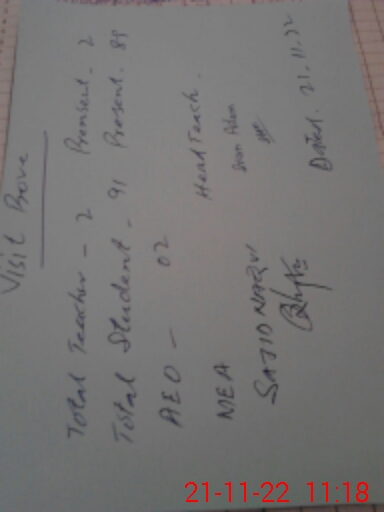 Visit Prove
Total Teacher - 2 Present. 2
Total Student - 91 Present. 89
AEO - 02
MEA Head Teach.
SAJID
Dated. 21.11.22
21-11-22 11:18